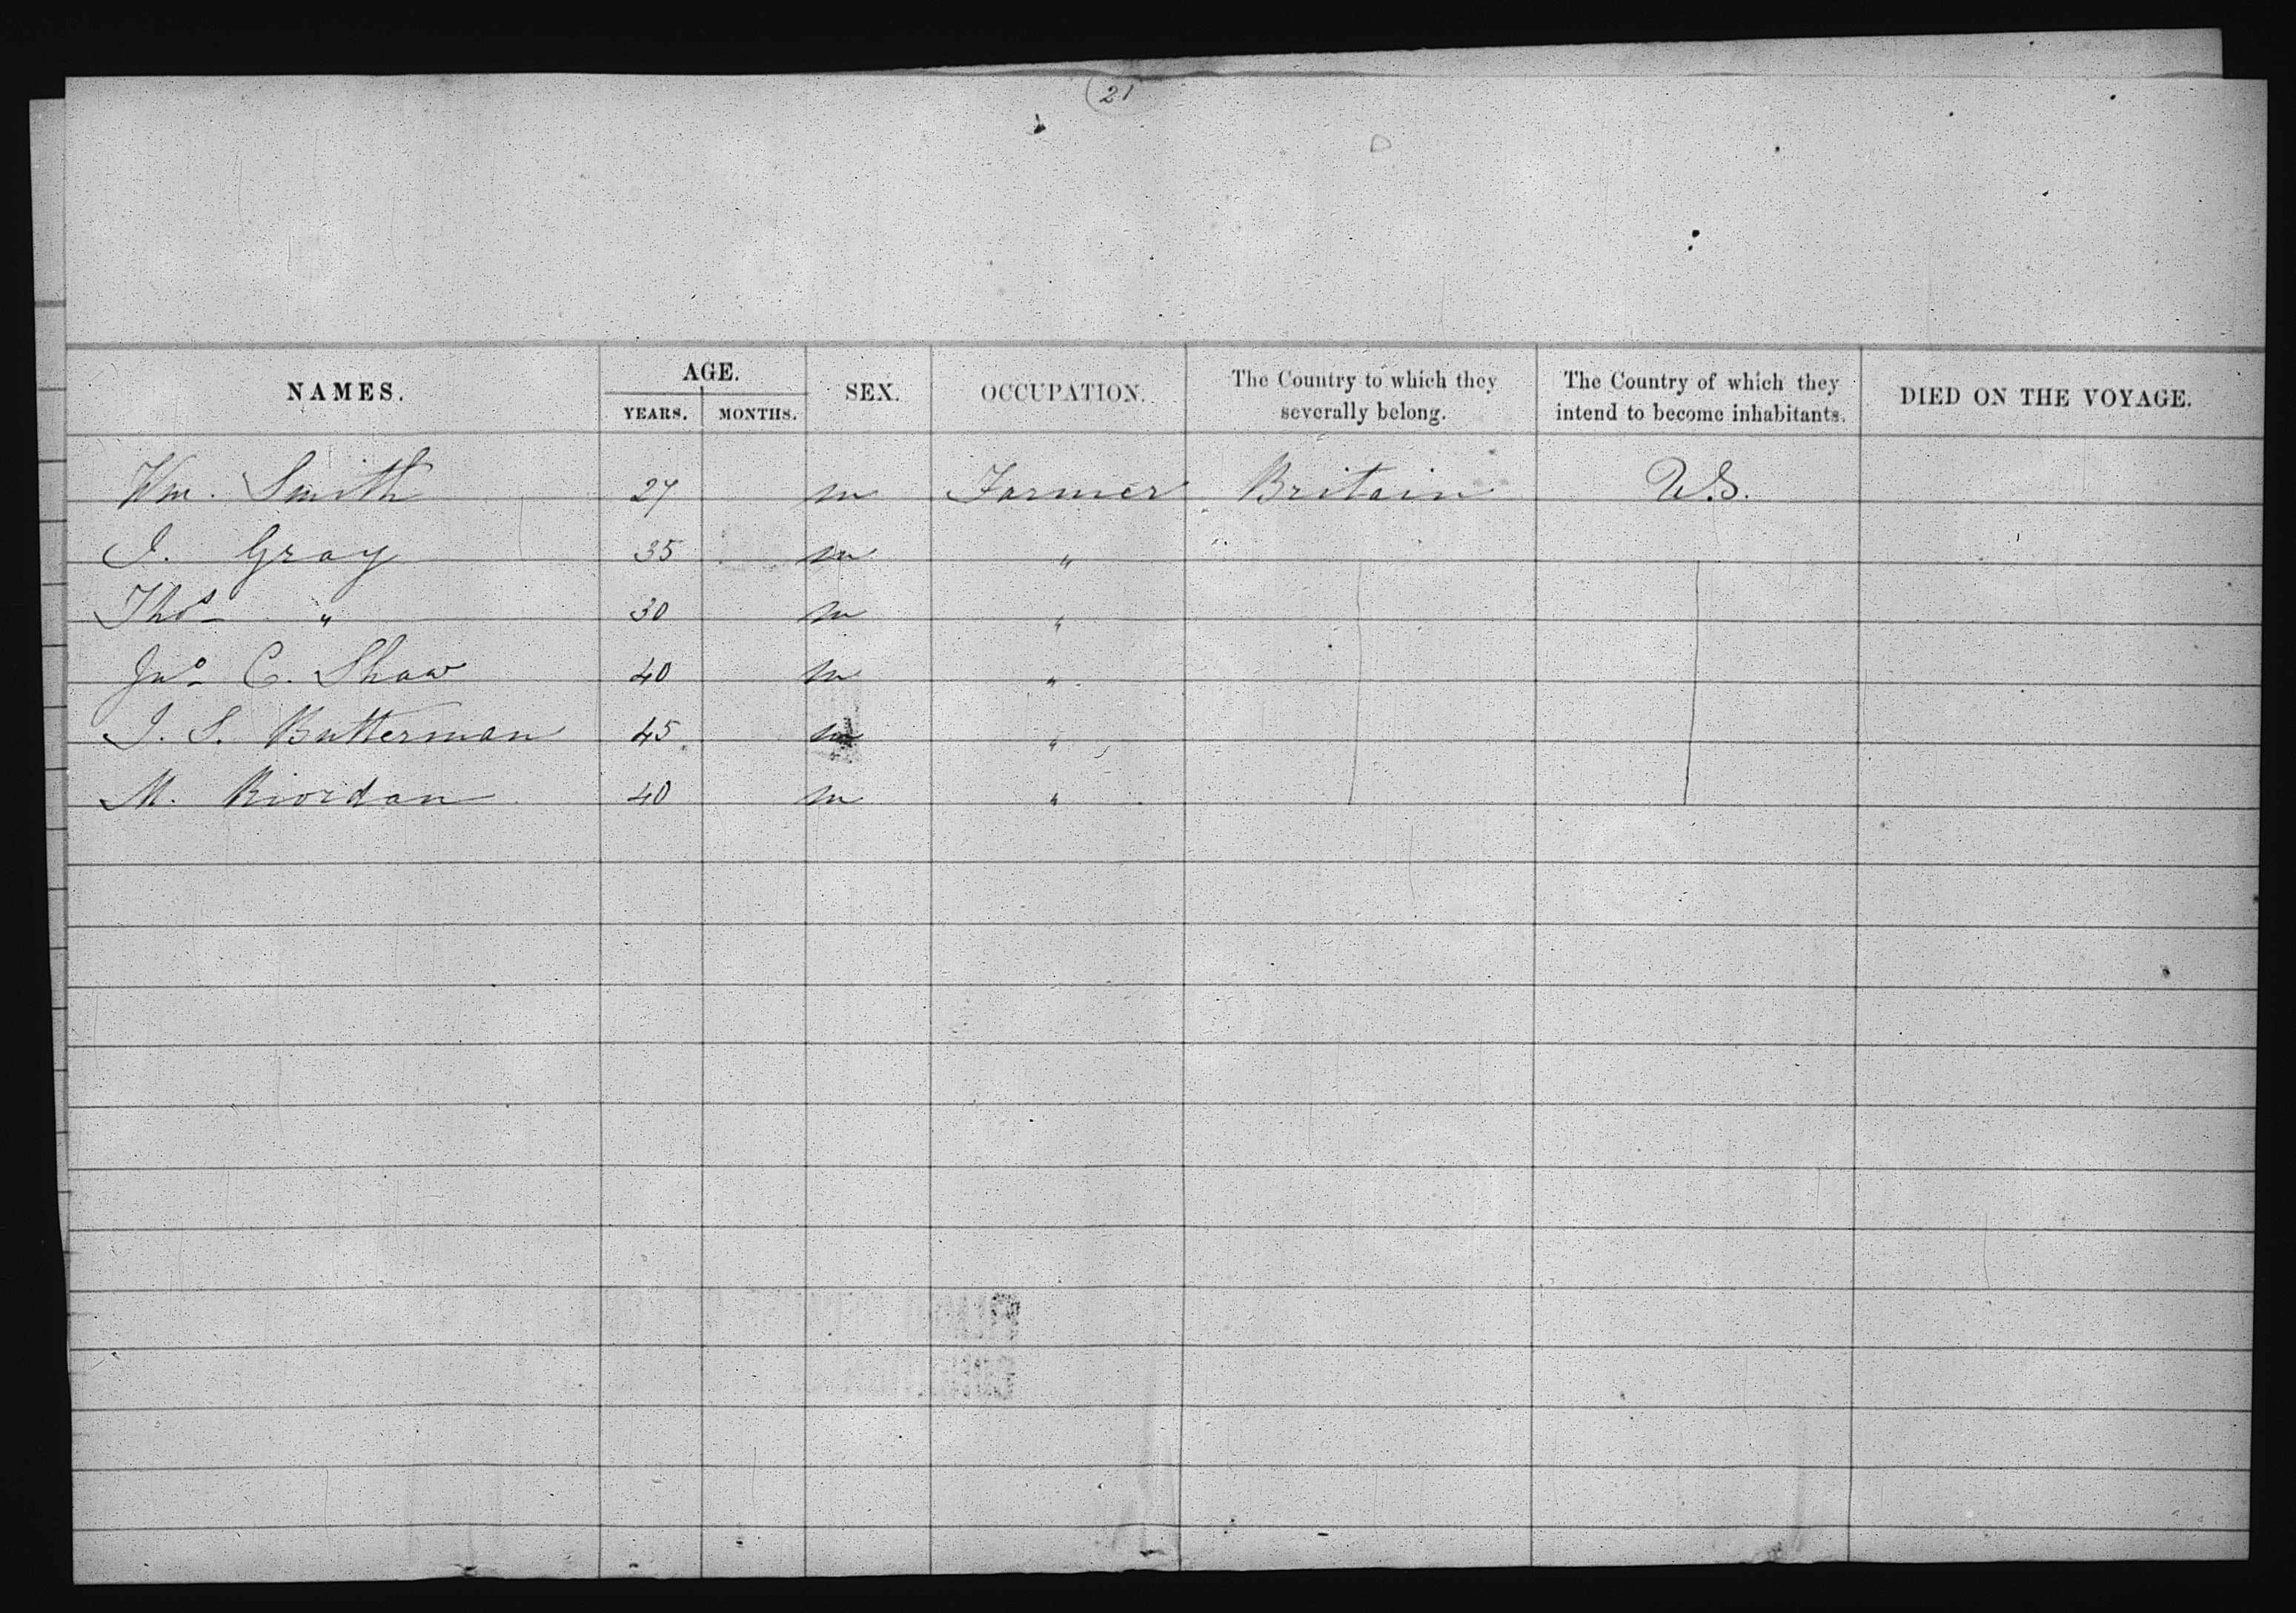 21
NAMES. AGE. YEARS. MONTHS. SEX. OCCUPATION. The Country to which they severally belong. The Country of which they intend to become inhabitants. DIED ON THE VOYAGE.
Wm. Smith 27 m Farmer Britain U.S.
J. Gray 35 m "
Thos " 30 m "
Jno C. Shaw 40 m "
J. S. Butterman 45 m "
M. Riordan 40 m "